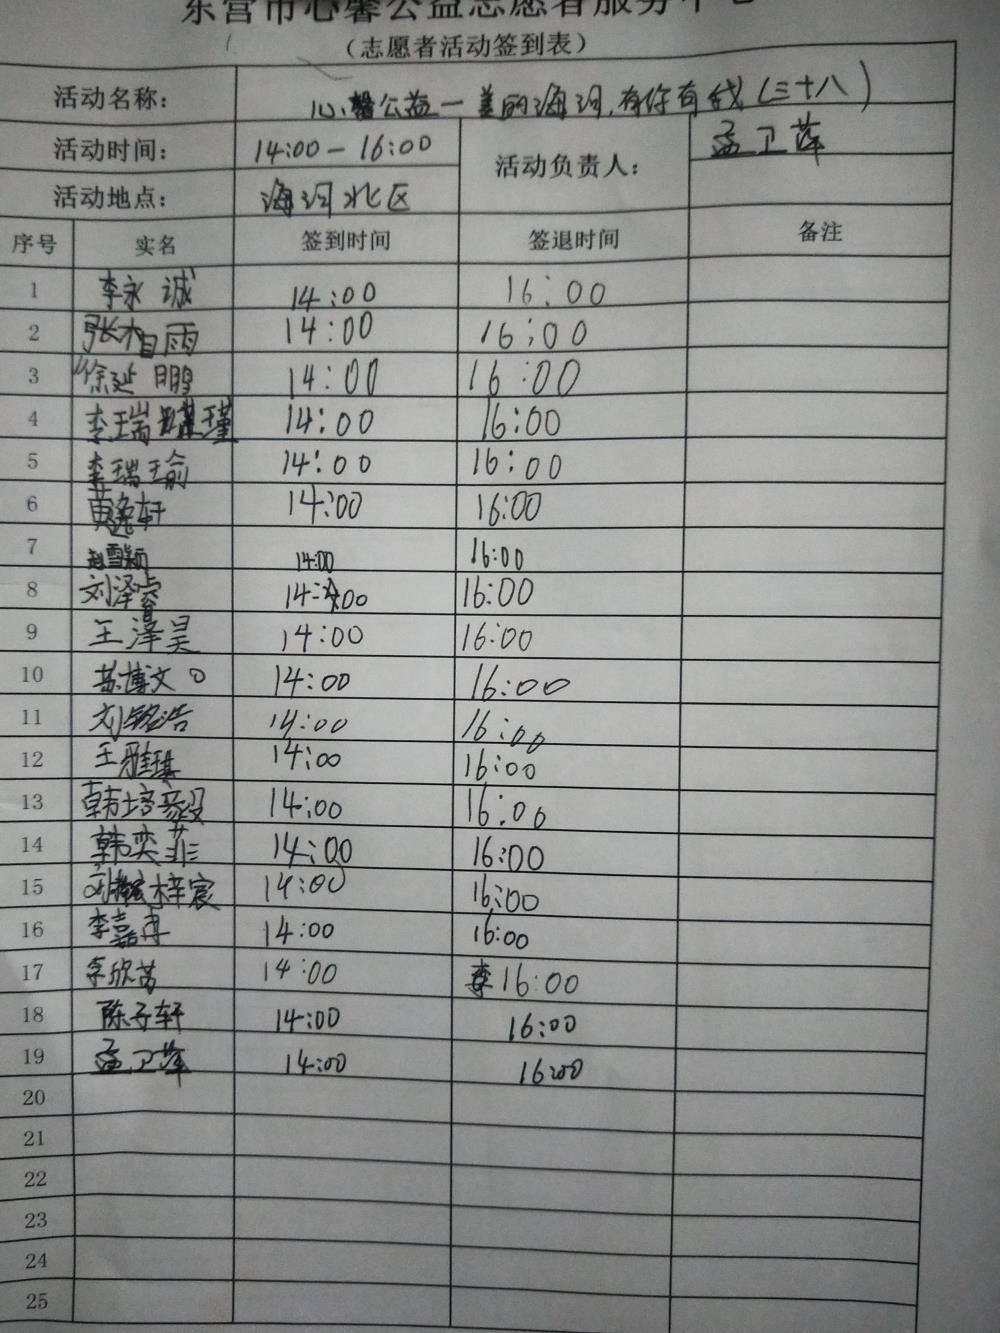 东营市心馨公益志愿者服务中心
（志愿者活动签到表）
活动名称： 心馨公益一美丽海河，有你有我（三十八）
活动时间： 14:00 - 16:00 活动负责人： 孟卫萍
活动地点： 海河北区
序号 实名 签到时间 签退时间 备注
1 李永诚 14:00 16:00
2 张栢雨 14:00 16:00
3 徐延鹏 14:00 16:00
4 李瑞瑾 14:00 16:00
5 李瑞瑜 14:00 16:00
6 黄逸轩 14:00 16:00
7 赵雪颖 14:00 16:00
8 刘泽睿 14:00 16:00
9 王泽昊 14:00 16:00
10 苏博文 14:00 16:00
11 刘铭浩 14:00 16:00
12 王雅琪 14:00 16:00
13 韩培毅 14:00 16:00
14 韩奕菲 14:00 16:00
15 刘梓宸 14:00 16:00
16 李嘉冉 14:00 16:00
17 李欣芮 14:00 李 16:00
18 陈子轩 14:00 16:00
19 孟卫萍 14:00 16:00
20
21
22
23
24
25